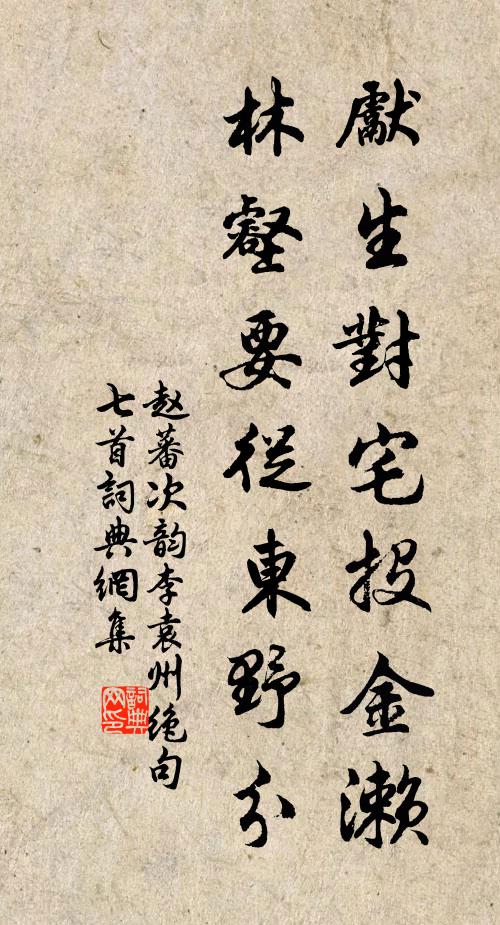 獻生對宅投金濑
林壑要從東野分
赵蕃次韵李袁州绝句
七首詞典網集
詞典网印